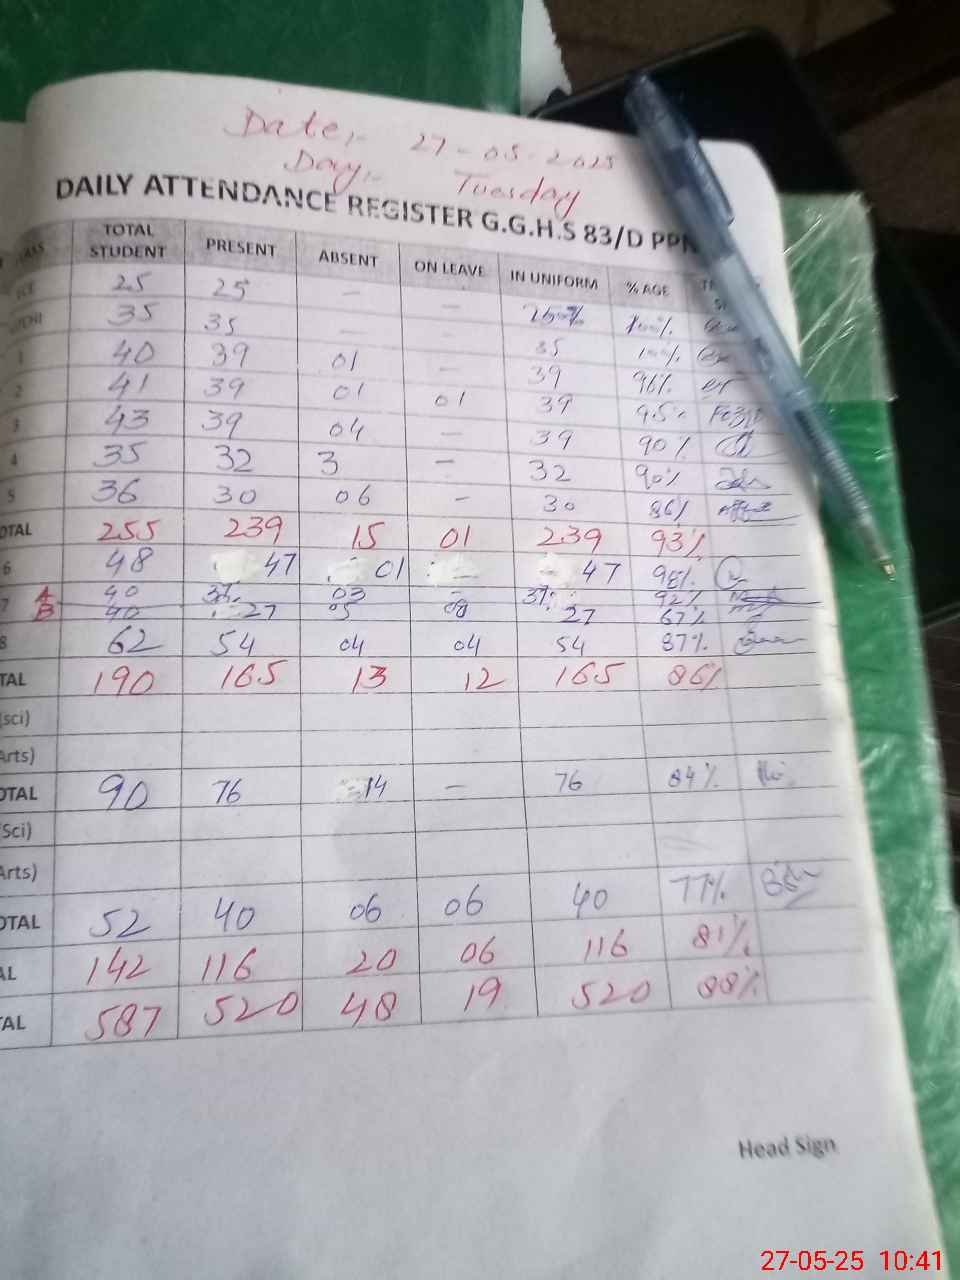 Date:- 27-05-2025
Day:- Tuesday
DAILY ATTENDANCE REGISTER G.G.H.S 83/D PPN
TOTAL STUDENT PRESENT ABSENT ON LEAVE IN UNIFORM % AGE
25 25 — — 100%
35 35 — — 35 100%
1 40 39 01 — 39 96%
2 41 39 01 01 39 95%
3 43 39 04 — 39 90%
4 35 32 3 — 32 90%
5 36 30 06 — 30 86%
OTAL 255 239 15 01 239 93%
6 48 47 01 — 47 98%
7 A 40 37 03 — 37 92%
B 40 27 05 08 27 67%
8 62 54 04 04 54 87%
TAL 190 165 13 12 165 86%
(sci)
Arts)
OTAL 90 76 14 — 76 84%
(Sci)
Arts)
OTAL 52 40 06 06 40 77%
AL 142 116 20 06 116 81%
TAL 587 520 48 19 520 88%
Head Sign
27-05-25 10:41